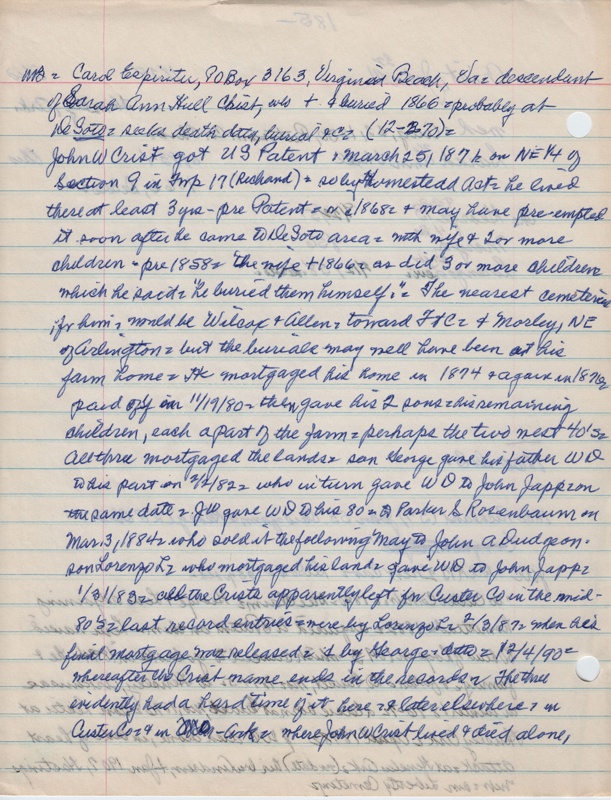 MB = Carol Espiritu, PO Box 3163, Virginia Beach, Va = descendant
of Sarah Ann Hull Chist, who + & buried 1866 = probably at
DeSoto = seeks death date, burial &c = (12-2-70) =
John W Crist got US Patent, March 25, 187 on NE 1/4 of
Section 9 in Twp 17 (Richland) = so by Homestead Act = he lived
there at least 3 yrs - pre Patent = or = 1868 = & may have pre-empted
it soon after he came to DeSoto area = with wife & 2 or more
children = pre 1858 = "the wife + 1866 = as did 3 or more children
which he said = "he buried them himself." = The nearest cemeteries
for him, would be Wilcox & Allen = toward Ft C = & Morley, NE
of Arlington = but the burials may well have been at his
farm home = He mortgaged his home in 1874 & again in 1876
paid off in 11/19/80 = then gave his 2 sons = his remaining
children, each a part of the farm = perhaps the two west 40's =
All three mortgaged the lands = son George gave his father WD
to his part in 2/ /82 = who in turn gave WD to John Japp = on
the same date = JW gave WD to his 80 = to Parker S Rosenbaum on
Mar. 3, 1884 = who sold it the following May to John A Dudgeon =
son Lorenzo L = who mortgaged his land = gave WD to John Japp =
1/31/83 = all the Crists apparently left for Custer Co in the mid-
80's = last record entries = were by Lorenzo L = 2/3/87 = when his
final mortgage was released = & by George = dtto = 12/4/90 =
whereafter the Crist name ends in the records = The three
evidently had a hard time of it here = & later elsewhere = in
Custer Co = & in - Ark = where John W Crist lived & died alone,